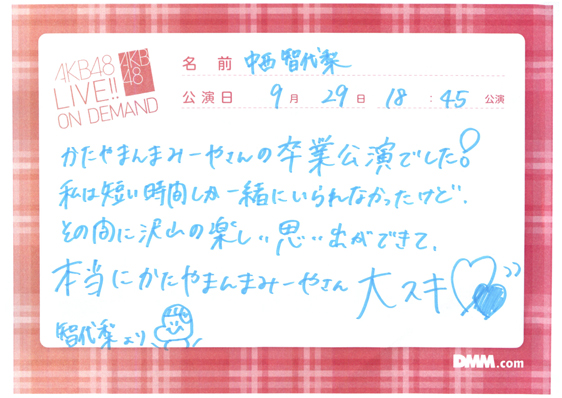 AKB48
LIVE!!
ON DEMAND
AKB
48
名 前 中西智代梨
公演日 9月 29日 18:45 公演
かたやまんまみーやさんの卒業公演でした!
私は短い時間しか一緒にいられなかったけど、
その間に沢山の楽しい思い出ができて、
本当にかたやまんまみーやさん 大スキ
智代梨より
DMM.com